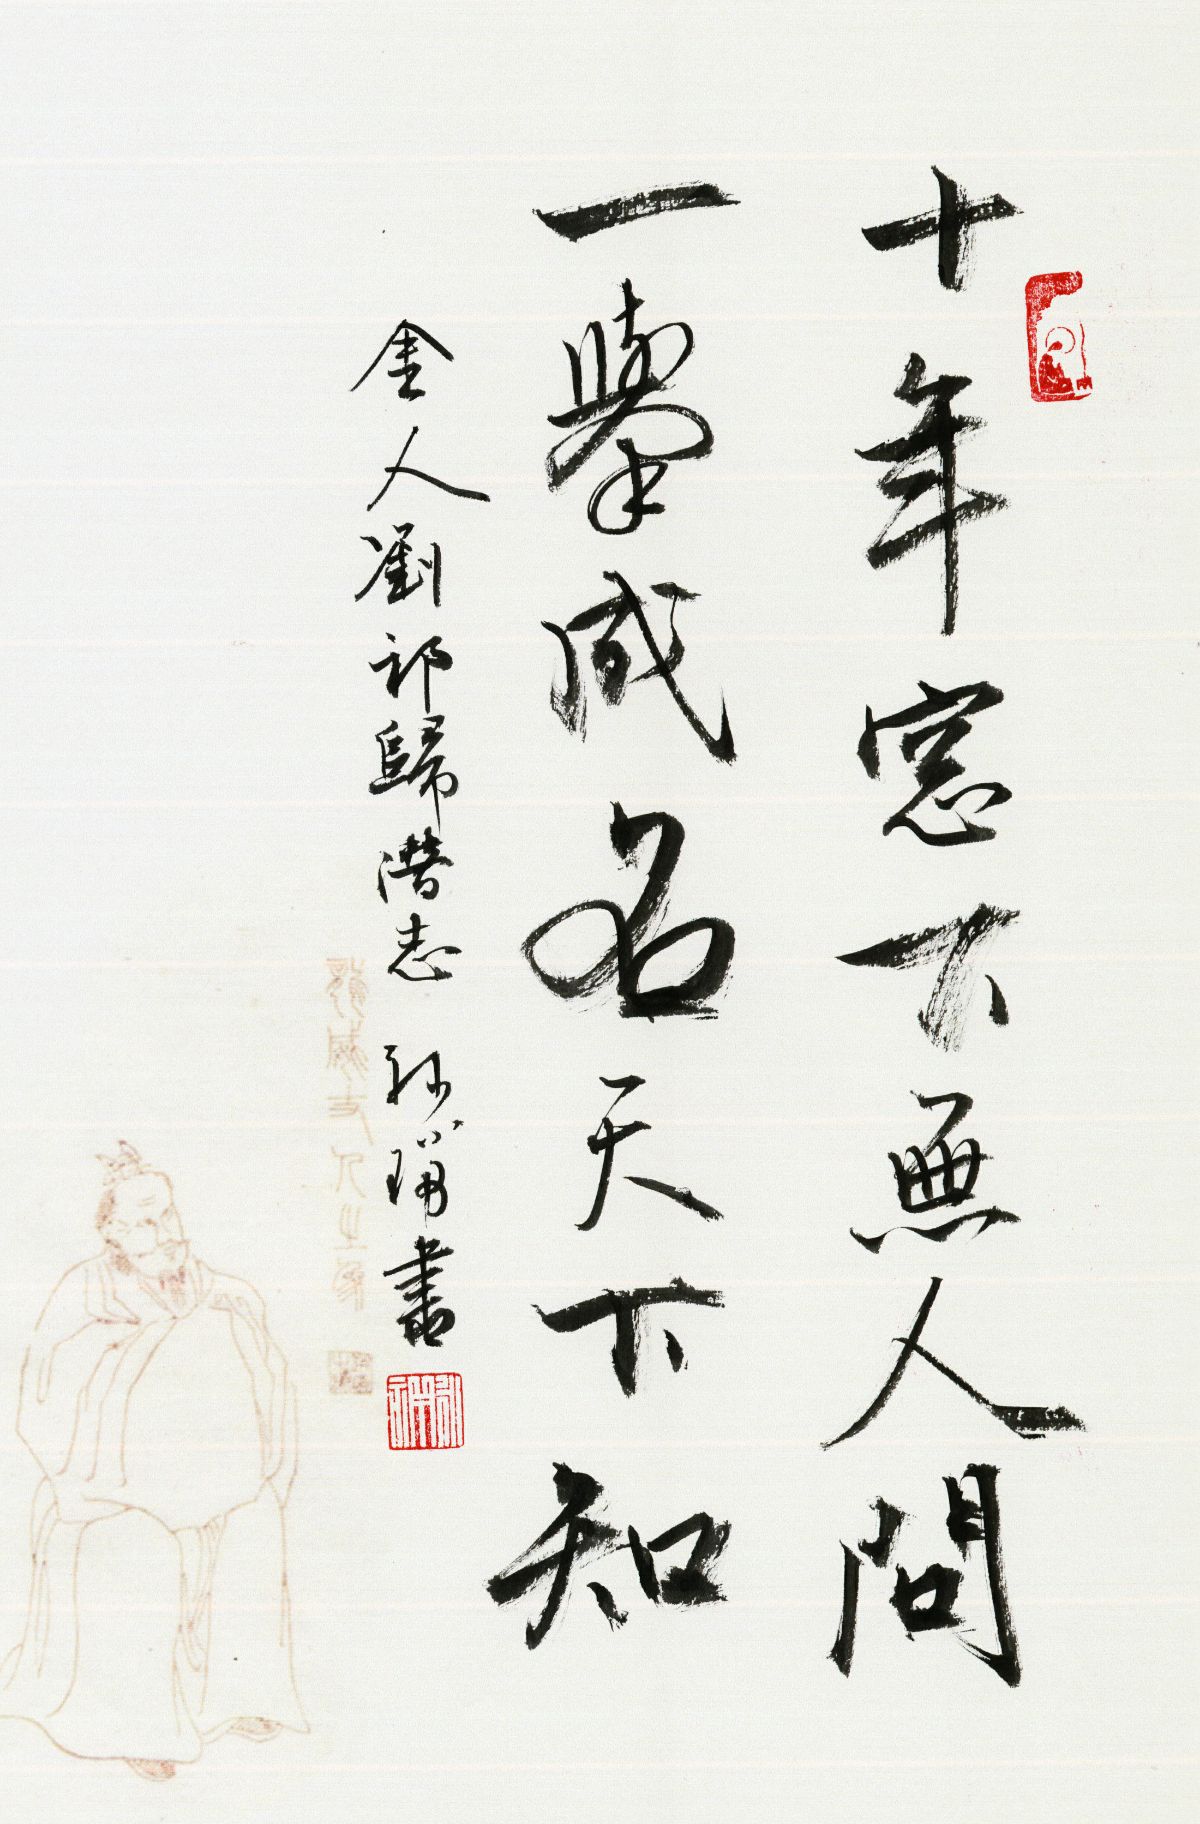 十年窓下無人問
一舉成名天下知
金人劉祁歸潛志 孫璘書